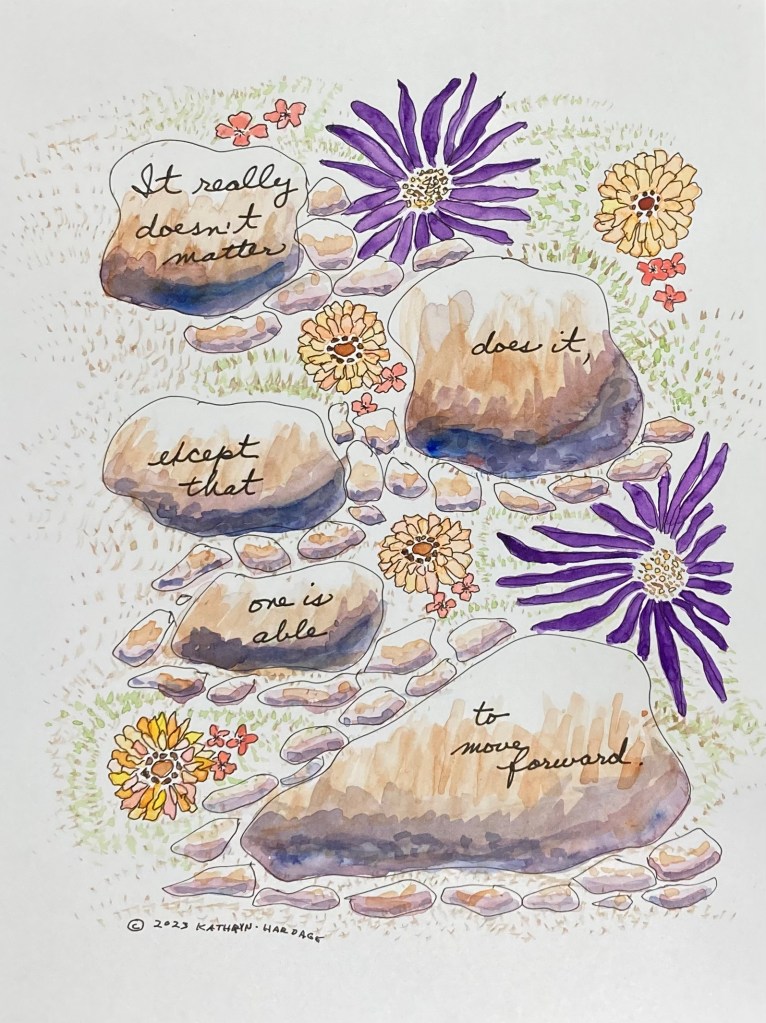 It really
doesn't
matter
does it,
except
that
one is
able
to
move
forward.
© 2023 KATHRYN·HARDAGE